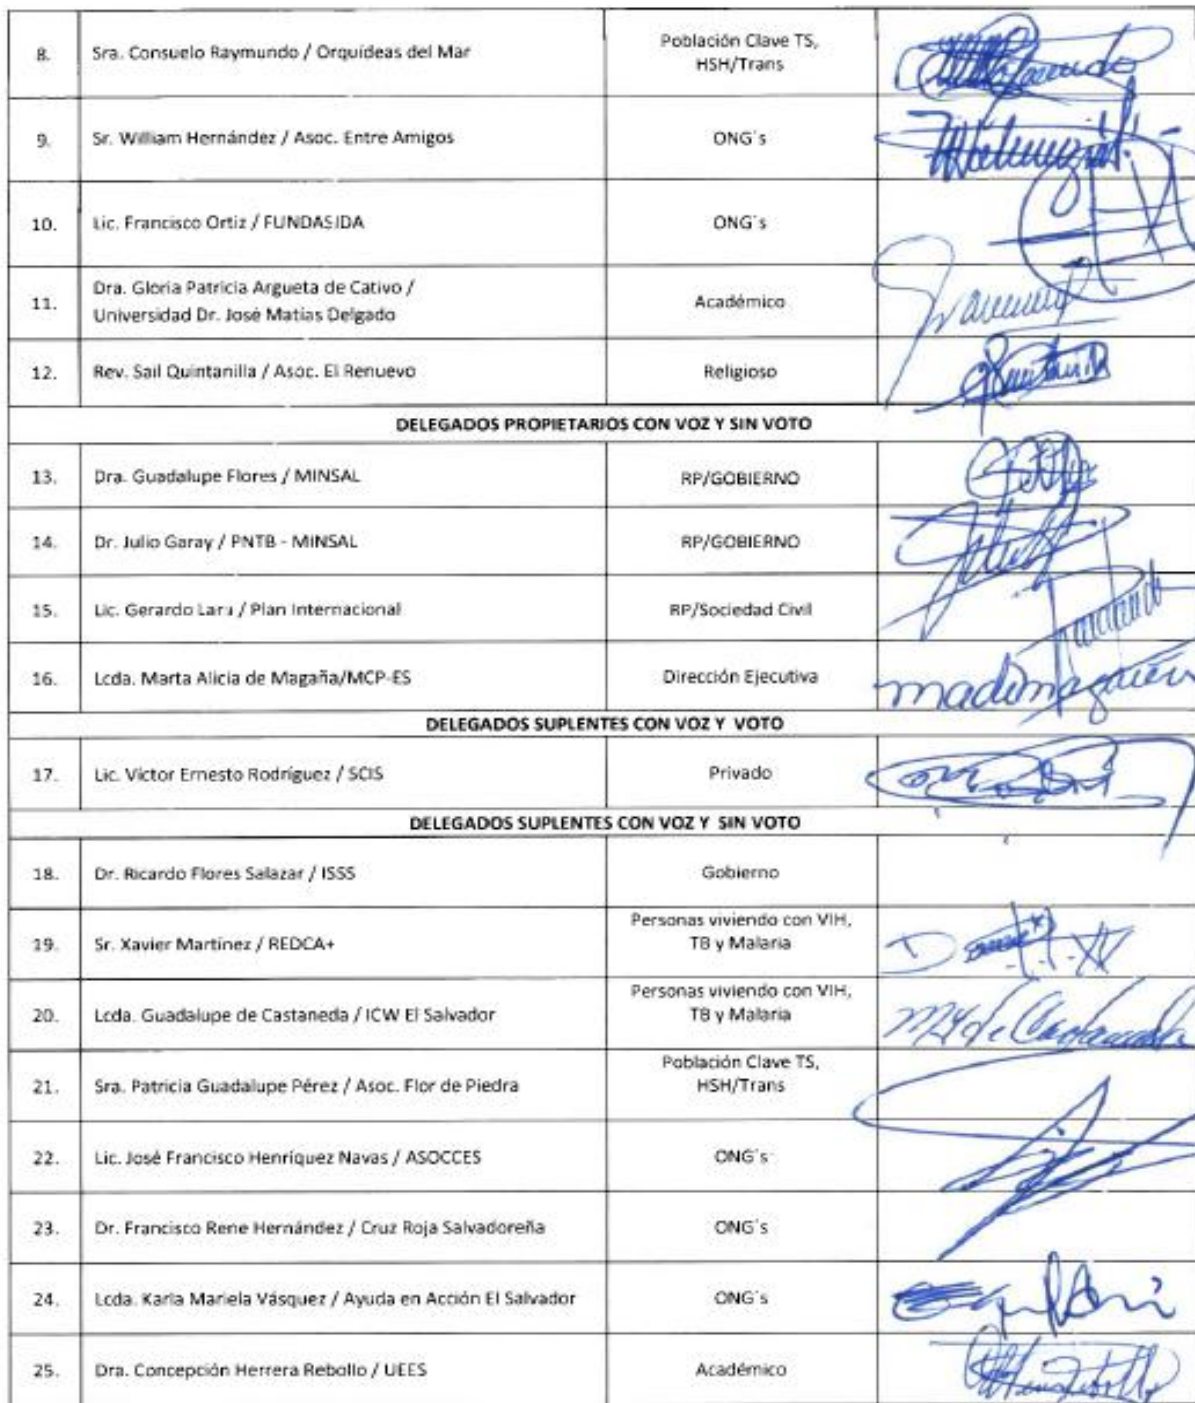 8. Sra. Consuelo Raymundo / Orquídeas del Mar Población Clave TS,
HSH/Trans
9. Sr. William Hernández / Asoc. Entre Amigos ONG´s
10. Lic. Francisco Ortiz / FUNDASIDA ONG´s
11. Dra. Gloria Patricia Argueta de Cativo /
Universidad Dr. José Matías Delgado Académico
12. Rev. Sail Quintanilla / Asoc. El Renuevo Religioso
DELEGADOS PROPIETARIOS CON VOZ Y SIN VOTO
13. Dra. Guadalupe Flores / MINSAL RP/GOBIERNO
14. Dr. Julio Garay / PNTB - MINSAL RP/GOBIERNO
15. Lic. Gerardo Lara / Plan Internacional RP/Sociedad Civil
16. Lcda. Marta Alicia de Magaña/MCP-ES Dirección Ejecutiva
DELEGADOS SUPLENTES CON VOZ Y VOTO
17. Lic. Víctor Ernesto Rodríguez / SCIS Privado
DELEGADOS SUPLENTES CON VOZ Y SIN VOTO
18. Dr. Ricardo Flores Salazar / ISSS Gobierno
19. Sr. Xavier Martínez / REDCA+ Personas viviendo con VIH,
TB y Malaria
20. Lcda. Guadalupe de Castaneda / ICW El Salvador Personas viviendo con VIH,
TB y Malaria
21. Sra. Patricia Guadalupe Pérez / Asoc. Flor de Piedra Población Clave TS,
HSH/Trans
22. Lic. José Francisco Henríquez Navas / ASOCCES ONG´s
23. Dr. Francisco Rene Hernández / Cruz Roja Salvadoreña ONG´s
24. Lcda. Karla Mariela Vásquez / Ayuda en Acción El Salvador ONG´s
25. Dra. Concepción Herrera Rebollo / UEES Académico